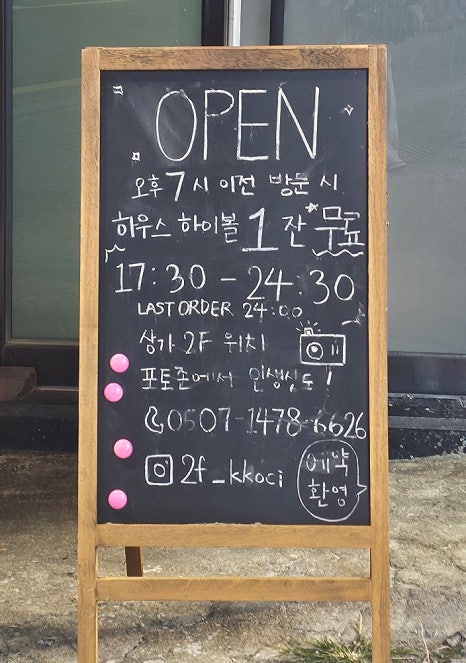 OPEN
오후 7시 이전 방문 시
하우스 하이볼 1잔 무료
17:30 - 24:30
LAST ORDER 24:00
상가 2F 위치
포토존에서 인생샷도!
0507-1478-6626
2f_kkoci
예약
환영